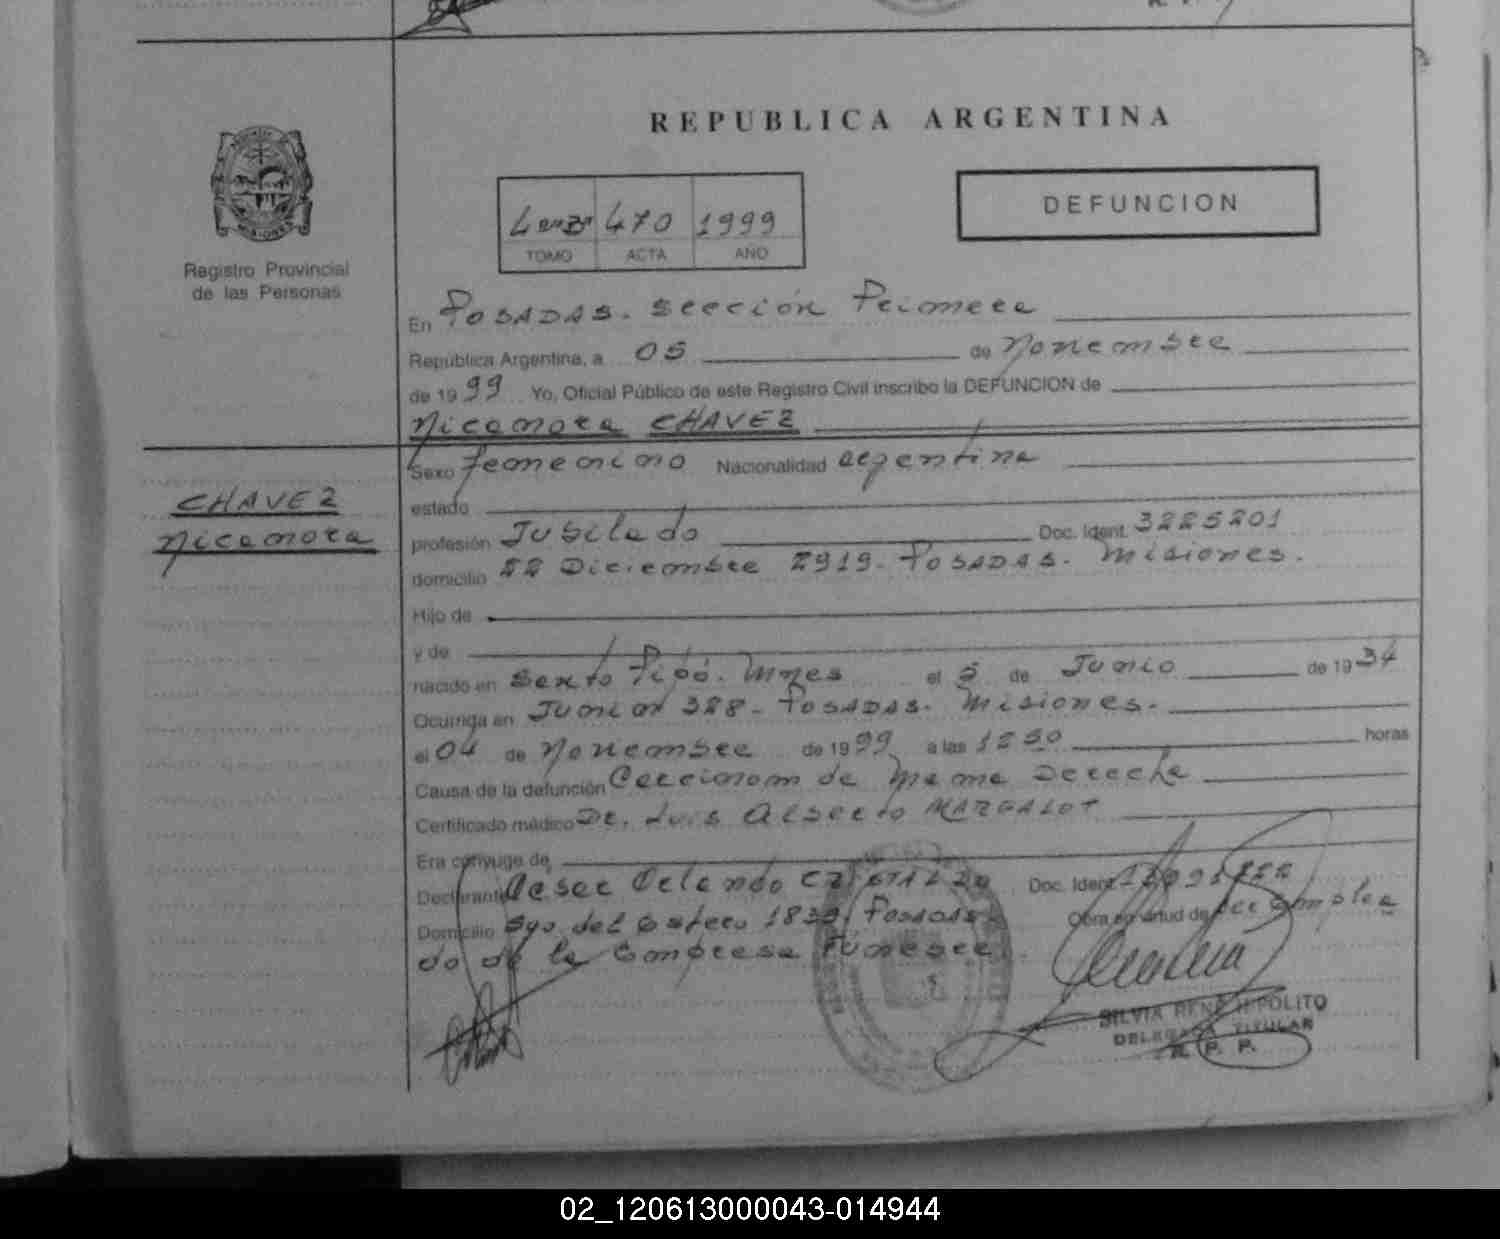 REPUBLICA ARGENTINA
DEFUNCION
470 1999
TOMO ACTA AÑO
MISIONES
Registro Provincial
de las Personas
En POSADAS. Sección Primera
República Argentina, a 05 de Noviembre
de 1999 Yo, Oficial Público de este Registro Civil inscribo la DEFUNCION de
Nicanora CHAVEZ
CHAVEZ
Nicanora
Sexo femenino Nacionalidad argentina
estado
profesión Jubilado Doc. Ident. 3225201
domicilio 22 Diciembre 2919. POSADAS. Misiones.
Hijo de
y de
nacido en Sexto Mnes el 5 de Junio de 1934
Ocurrida en Junior 328 - POSADAS. Misiones.
el 04 de Noviembre de 1999 a las 1230 horas
Causa de la defunción de Mama Derecha
Certificado médico Dr. Luis Alberto MARGALOT
Era cónyuge de
Declarante Cesar Orlando Doc. Ident.
Domicilio Sgo. del Estero Posadas. Obra en virtud de ser emplea
do de la Empresa Funebre.
SILVIA RENE HIPOLITO
DELEGADA TITULAR
R. P. P.
02_120613000043-014944